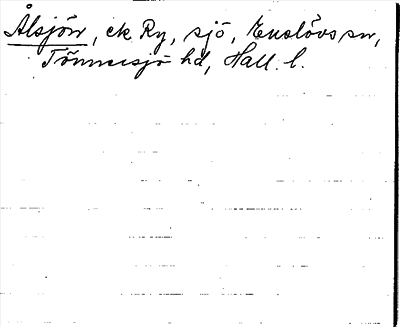 Ålsjön, ek Ry, sjö, Enslövs sn,
Tönnersjö hd, Hall. l.